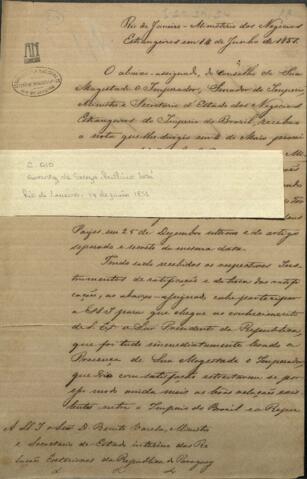 Rio de Janeiro - Ministerio dos Negocios
Estrangeiros em 14 de Junho de 1851.
O abaixo-assignado, do Conselho de Sua
Magestade o Imperador, Senador do Imperio,
Ministro e Secretario d'Estado dos Negocios
Estrangeiros do Imperio do Brasil, recebeu
a nota que lhe dirigio em de Maio proxi
C. 010
Rio de Janeiro, 14 de junio 1851
Paizes em 25 de Dezembro ultimo e do artigo
separado e secreto da mesma data.
Tendo sido recebidos os respectivos Ins-
trumentos de ratificação e da troca das ratifi-
cações, ao abaixo-assignado, cabe participar
a S.E.ª para que chegue ao conhecimento
de S. Ex.ª o Snr. Presidente da Republica,
que foi tudo immediatamente levado a
Presença de Sua Magestade o Imperador,
que com satisfação estreitarem-se por
modo ainda mais as boas relações exis-
tentes entre o Imperio do Brasil e a Repu
A S. E. o Snr. D. Benito Varela, Ministro
e Secretario de Estado interino das Re-
lações Exteriores da Republica do Paraguay